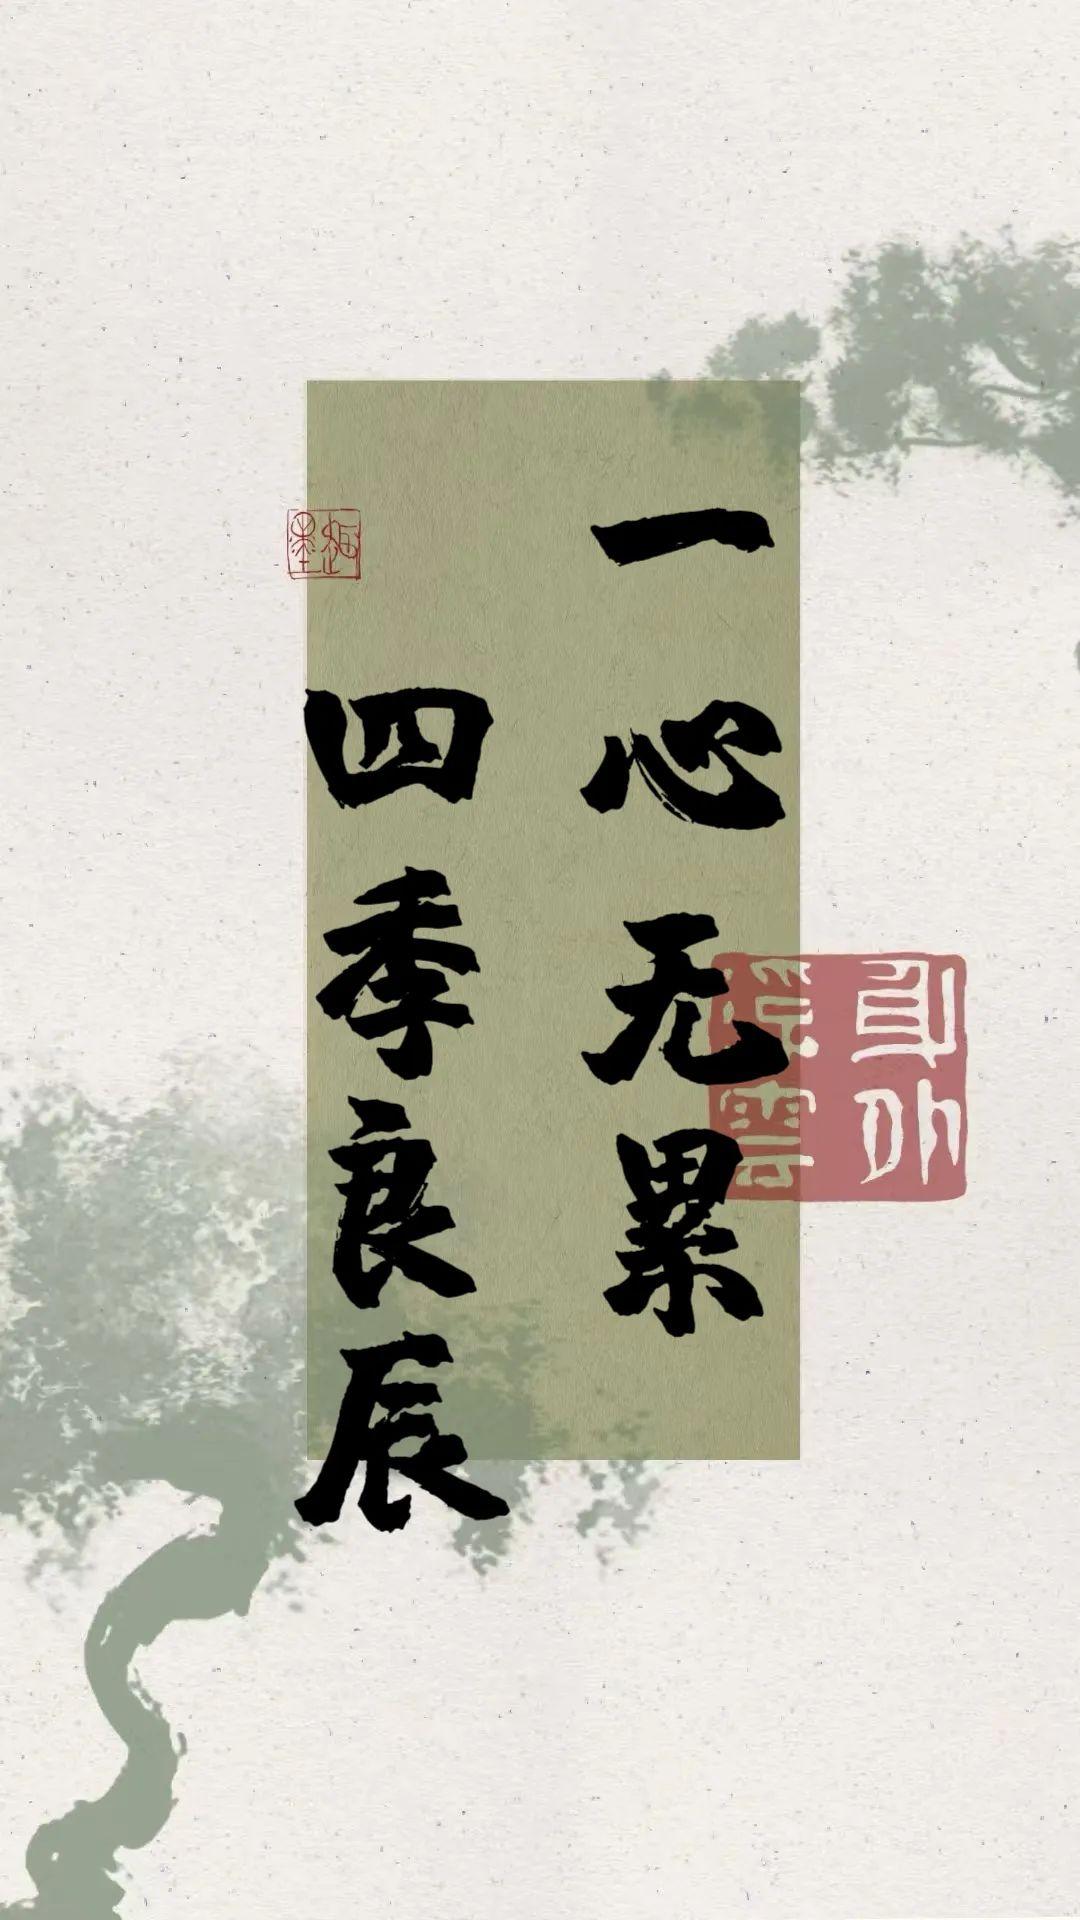 一心无累
四季良辰